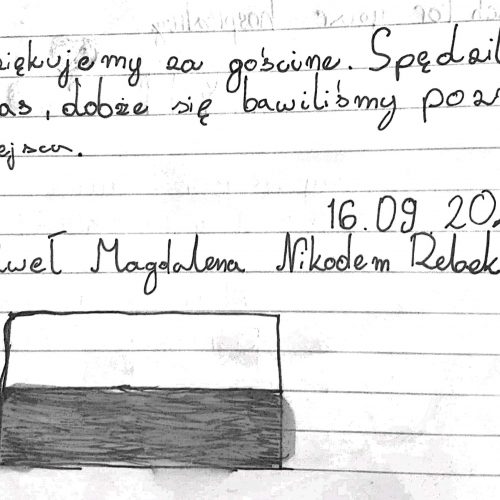 iękujemy za gościne. Spędzil
as, dobże się bawiliśmy poz
ejscu.
16.09 20
weł Magdalena Nikodem Rebek